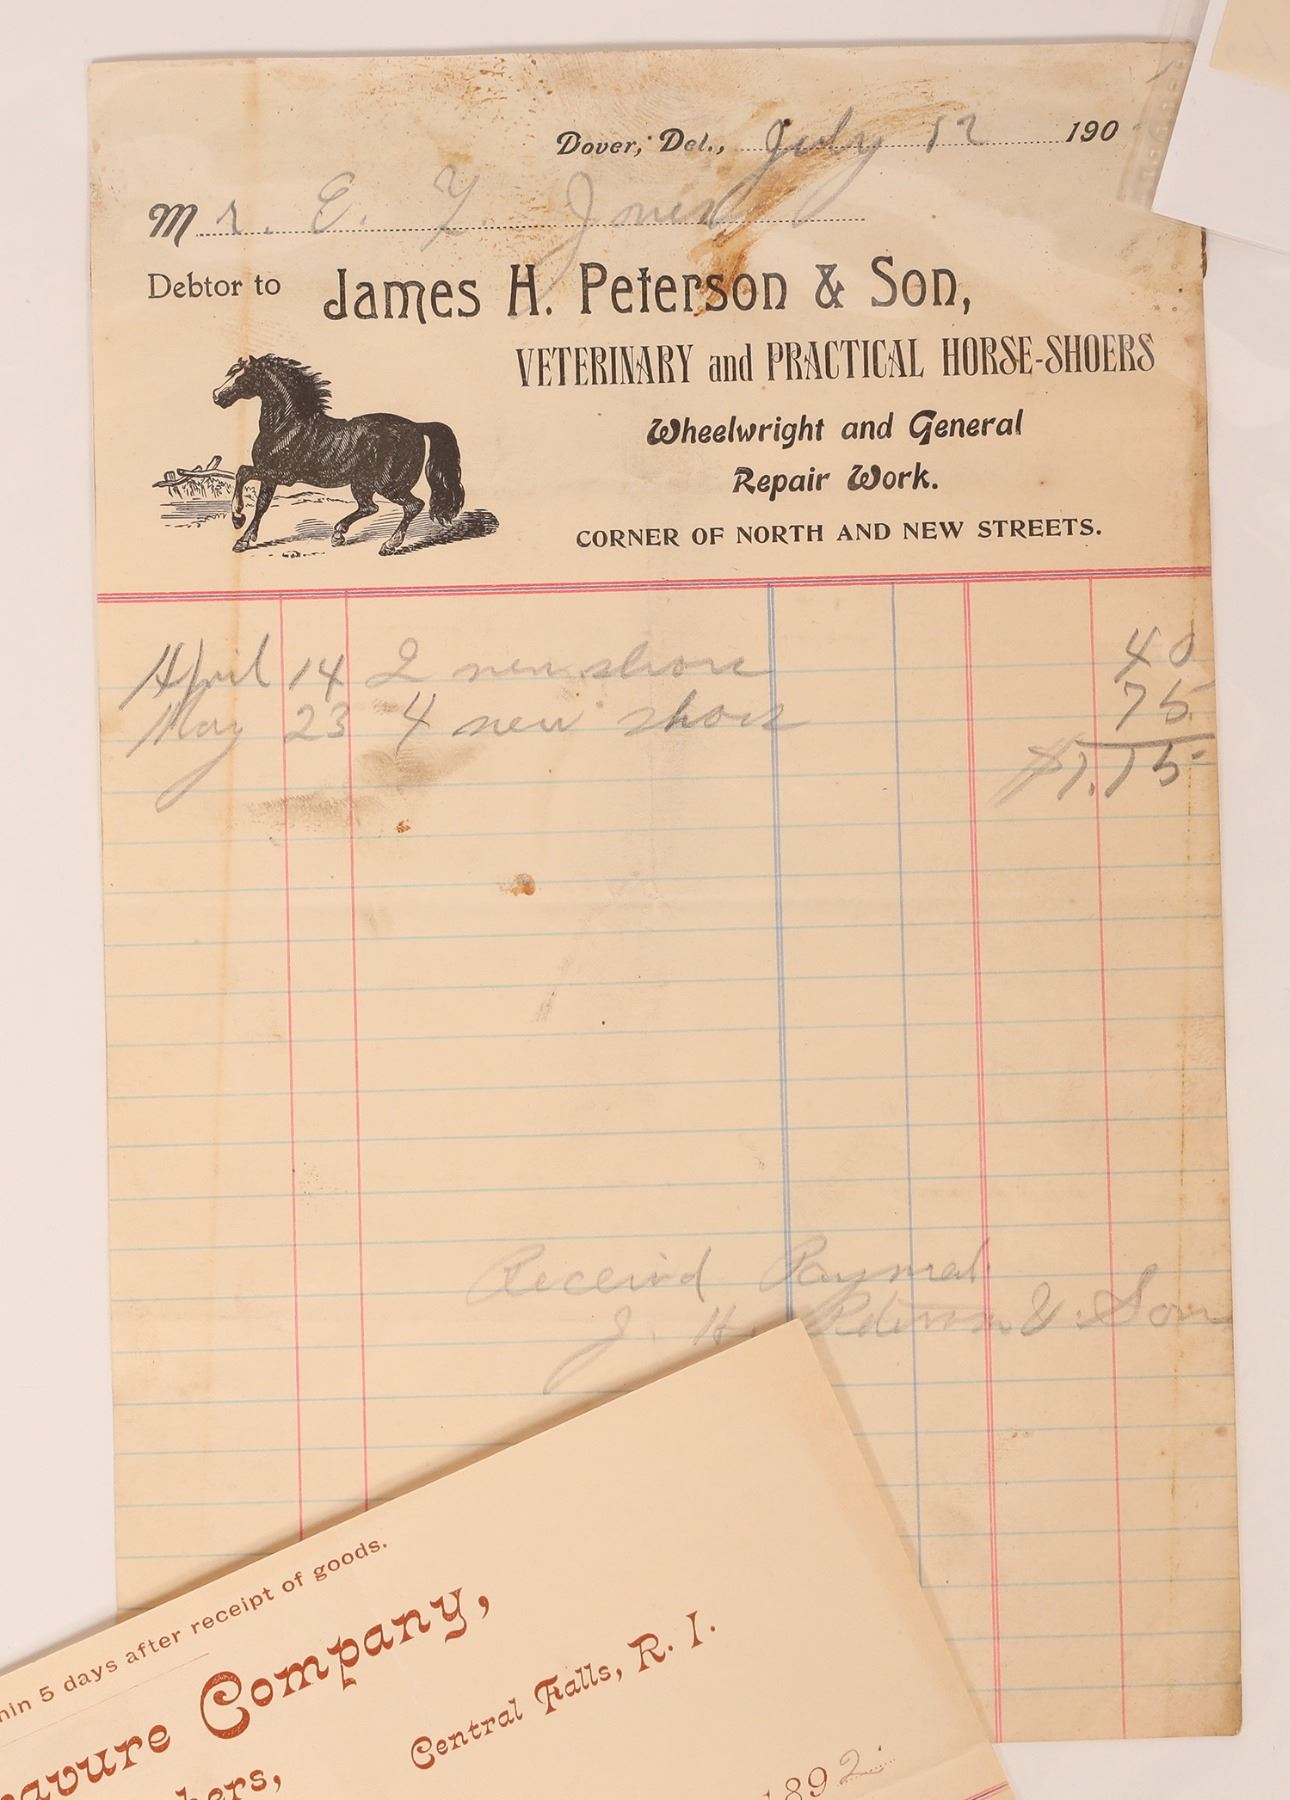 Dover, Del., July 12 190
Mr. E. Z. Jones
Debtor to James H. Peterson & Son,
VETERINARY and PRACTICAL HORSE-SHOERS
Wheelwright and General
Repair Work.
CORNER OF NORTH AND NEW STREETS.
April 14 2 new shoes 40
May 23 4 new shoes 75
$1.15
Received Payment
J. H. Peterson & Son
5 days after receipt of goods.
Company,
Central Falls, R. I.
1892